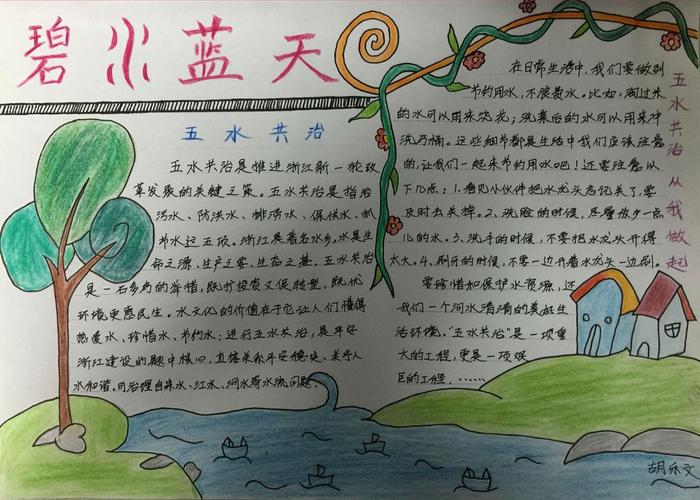 碧水蓝天
五水共治
五水共治是推进浙江新一轮改
革发展的关键之策。五水共治是指治
污水、防洪水、排涝水、保供水、抓
节水这五项。浙江是著名水乡,水是生
命之源、生产之要、生态之基。五水共治
是一石多鸟的举措,既扩投资又促转型,既优
环境更惠民生。水文化的价值在于它让人们懂得
热爱水、珍惜水、节约水;进行五水共治,是平安
浙江建设的题中核心,直接关系平安稳定、关乎人
水和谐。可治理自来水、江水、河水等水流问题。
在日常生活中,我们要做到
节约用水,不浪费水。比如:淘过米
的水可以用来浇花;洗菜后的水可以用来冲
洗马桶。这些细节都是生活中我们应该注意
的,让我们一起来节约用水吧!还要注意以
下几点:1.看见小伙伴把水龙头忘记关了,要
及时去关掉。2、洗脸的时候,尽量放少一点
儿的水。3、洗手的时候,不要把水龙头开得
太大。4、刷牙的时候,不要一边开着水龙头一边刷。
要珍惜和保护水资源,还
我们一个河水清清的美好生
活环境。“五水共治”是一项重
大的工程,更是一项艰
巨的工程,……
五水共治从我做起
胡乐文